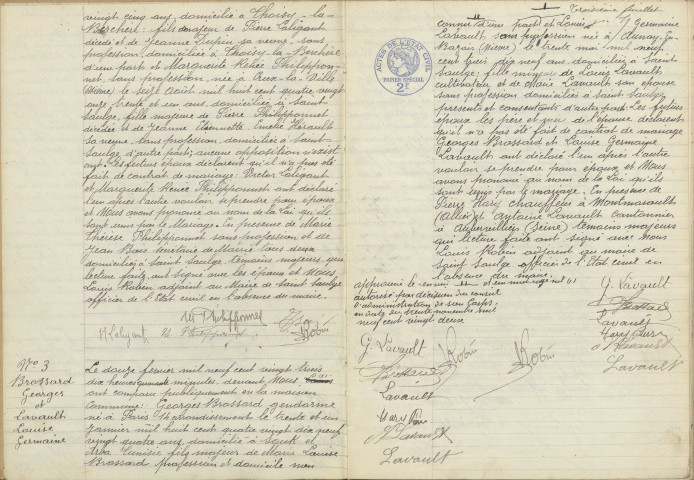 vingt cinq ans, domiciliée à Choisy-la-
Berchère, fils majeur de Pierre Caligant
décédé et de Jeanne Dupin sa veuve sans
profession, domiciliée à Choisy-la-Berchère
d'une part et Marguerite Renée Philippon-
net, sans profession, née à Crux-la-Ville
(Nièvre) le seize août mil huit cent quatre vingt
onze trente et un ans, domiciliée à Saint
Saulge, fille majeure de Pierre Philipponnet
décédé et de Jeanne Hérault
sa veuve, sans profession, domiciliée à Saint
Saulge d'autre part; aucune opposition n'exist
ant. Les futurs époux déclarent qu'il n'a pas été
fait de contrat de mariage. Victor Caligant
et Marguerite Renée Philipponnet ont déclaré
l'un après l'autre vouloir se prendre pour époux
et Nous avons prononcé au nom de la Loi qu'ils
sont unis par le Mariage. En présence de Marie
Thérèse Philipponnet sans profession et de
Jean secrétaire de Mairie tous deux
domiciliés à Saint Saulge témoins majeurs, qui
lecture faite, ont signé avec les époux et Nous
Louis Robin adjoint au Maire de Saint Saulge
officier de l'Etat civil en l'absence du maire.
Philipponnet
Robin
N° 3
Brossard
Georges
et
Lavault
Louise
Germaine
Le douze février mil neuf cent vingt trois
dix heures minutes, devant Nous
ont comparu publiquement en la maison
Commune: Georges Brossard gendarme
né à Paris arrondissement le trente et un
janvier mil huit cent quatre vingt dix neuf
vingt quatre ans, domicilié à Souk el
Arba Tunisie fils majeur de Louise
Brossard profession et domicile non
Troisième feuillet
connus d'une part et Louise Germaine
Lavault sans profession née à Aunay-en-
Bazois (Nièvre) le trente mai mil neuf
cent trois dix neuf ans, domiciliée à Saint
Saulge, fille mineure de Louis Lavault
cultivateur et de Marie Lavault son épouse
sans profession domiciliés à Saint Saulge
présents et consentants d'autre part. Les futurs
époux les père et mère de l'épouse déclarent
qu'il n'a pas été fait de contrat de mariage
Georges Brossard et Louise Germaine
Lavault ont déclaré l'un après l'autre
vouloir se prendre pour époux et Nous
avons prononcé au nom de la Loi qu'ils
sont unis par le mariage. En présence de
Pierre Hary chauffeur à Montmarault
(Allier) et Antoine Lavault cantonnier
à Aubervilliers (Seine) témoins majeurs
qui lecture faite ont signé avec Nous
Louis Robin adjoint au maire de
Saint Saulge officier de l'Etat civil en
l'absence du maire.
autorisé par décision du conseil
d'administration de son Corps
en date du trente novembre mil
neuf cent vingt deux
ACTES DE L'ÉTAT CIVIL
PAPIER SPÉCIAL
2F
G. Lavault
Brossard
Lavault
Robin
Robin
Lavault
G. Lavault
Brossard
Lavault
Lavault